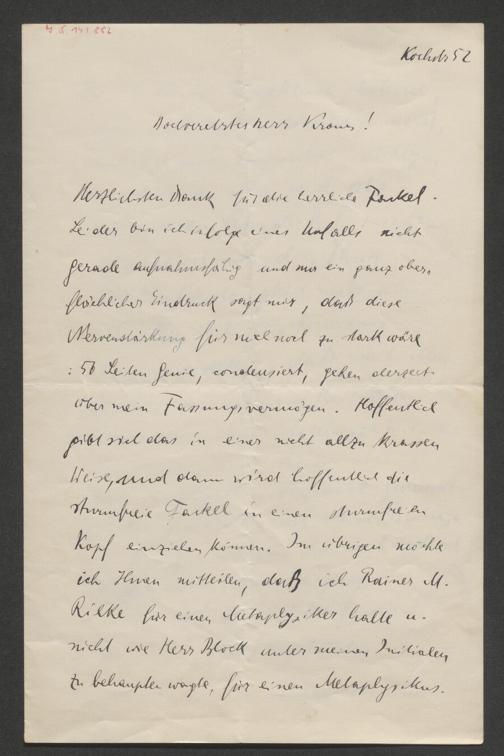 H.I.N. 141852
Kochstr 52
Hochverehrter Herr Kraus!
Herzlichsten Dank für die herrliche Fackel.
Leider bin ich infolge eines Unfalls nicht
gerade aufnahmsfähig und nur ein ganz ober-
flächlicher Eindruck sagt mir, daß diese
Nervenstärkung für mich noch zu stark wäre
: 50 Seiten Genie, condensiert, gehen derzeit
über mein Fassungsvermögen. Hoffentlich
gibt sich das in einer nicht allzu krassen
Weise, und dann wird hoffentlich die
sturmfreie Fackel in einen sturmfreien
Kopf einziehen können. Im übrigen möchte
ich Ihnen mitteilen, daß ich Rainer M.
Rilke für einen Metaphysiker halte u.
nicht wie Herr Block unter meinen Initialen
zu behaupten wagte, für einen Metaphysikus.